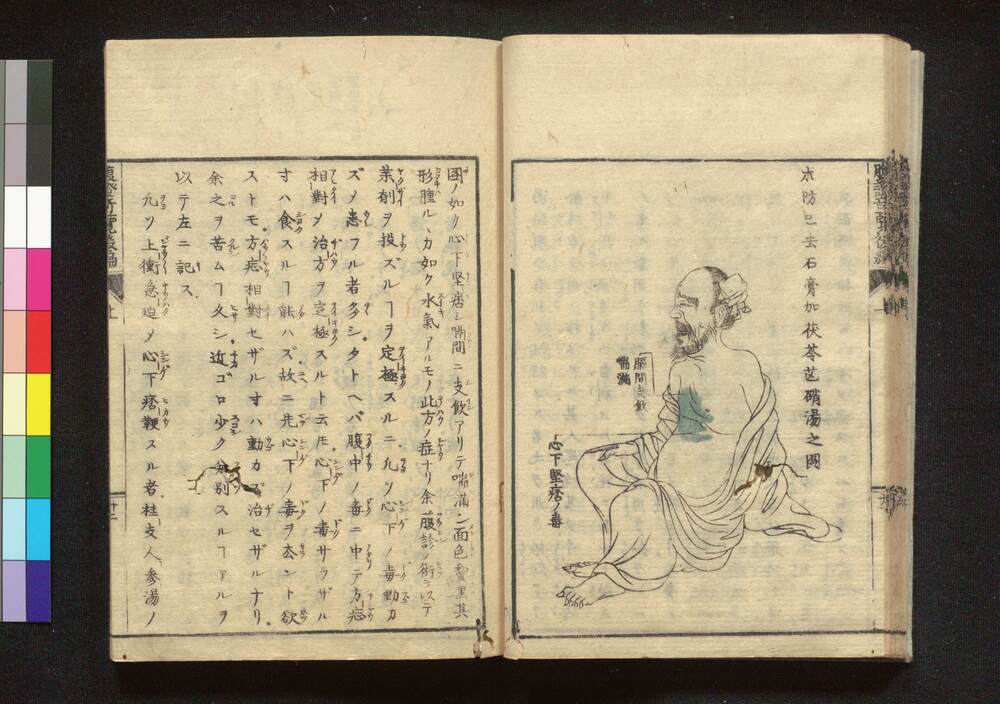 木防已去石膏加茯苓芒硝湯之図
膈間支飲
喘満
心下堅痞ノ毒
図ノ如ク心下堅痞シ膈間ニ支飲アリテ喘満シ面色黧黒其
形腫ルヽカ如ク水氣アルモノ此方ノ症ナリ余腹診ノ術ヲ以テ
薬剤ヲ投ズルヿヲ定極スルニ凡ソ心下ノ毒動カ
ズメ患フル者多シタトヘバ腹中ノ毒ニ中テ方症
相對メ治方ヲ定極スルト云𪜈心下ノ毒サラザル
寸ハ食スルヿ能ハズ故ニ先心下ノ毒ヲ本ント欲
ストモ方症相對セザル寸ハ動カズ治セザルナリ
余之ヲ苦ムヿ久シ近ゴロ少ク分別スルヿアルヲ
以テ左ニ記ス
凡ソ上衝急迫メ心下痞鞕スル者桂支人参湯ノ